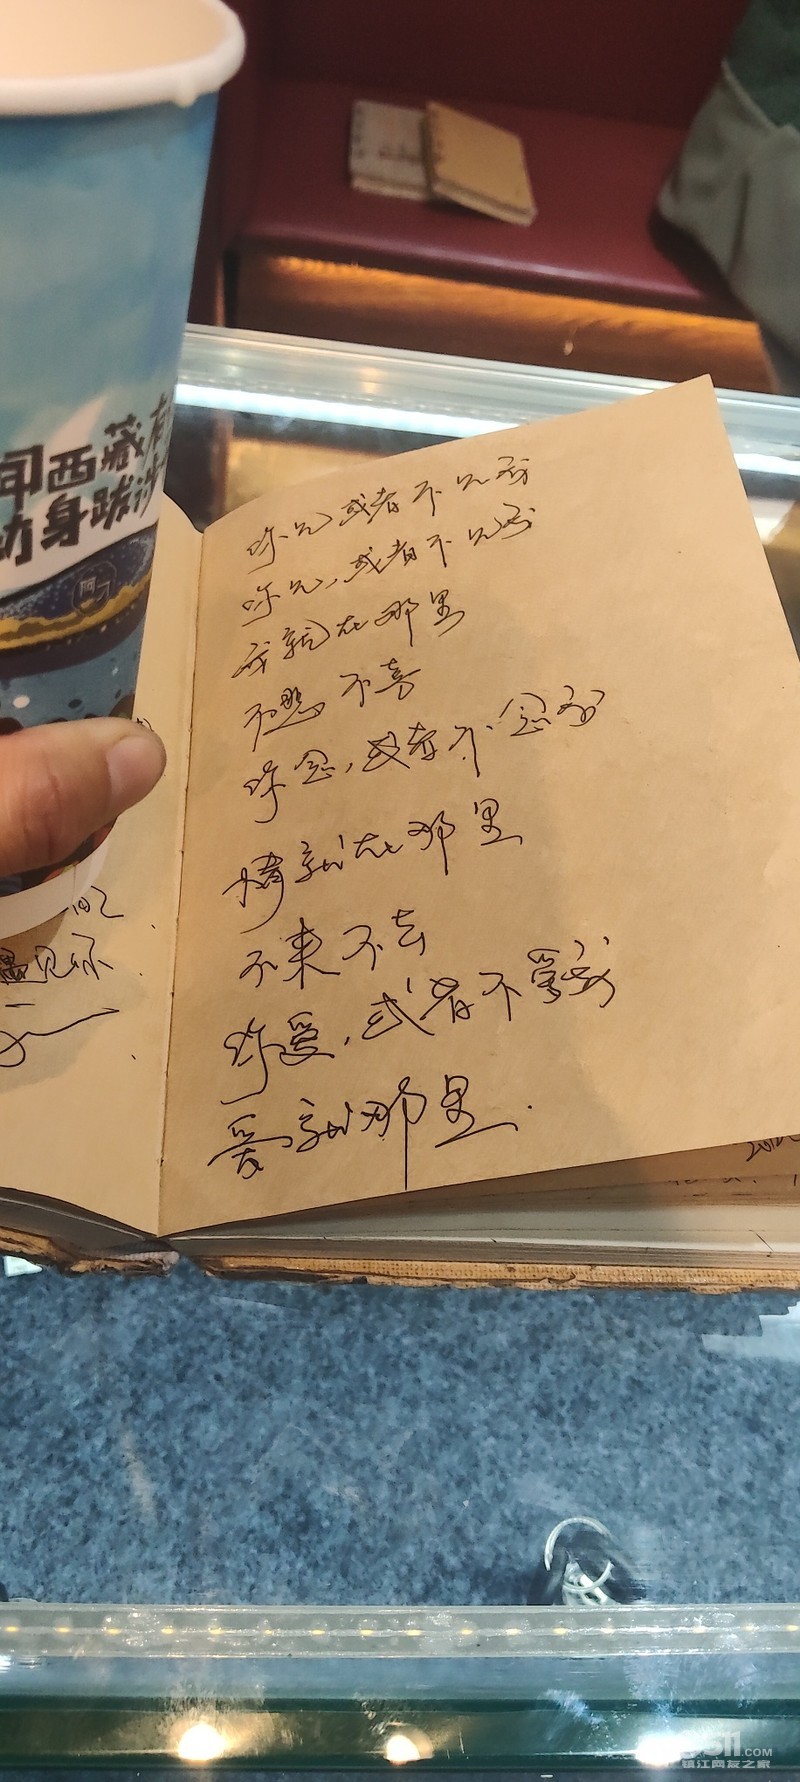 西藏有
动身跋涉
阿
你见或者不见我
你见,或者不见我
我就在那里
不悲 不喜
你念,或者不念我
情就在那里
不来不去
你爱,或者不爱我
爱就那里.
遇见你
.COM
镇江网友之家